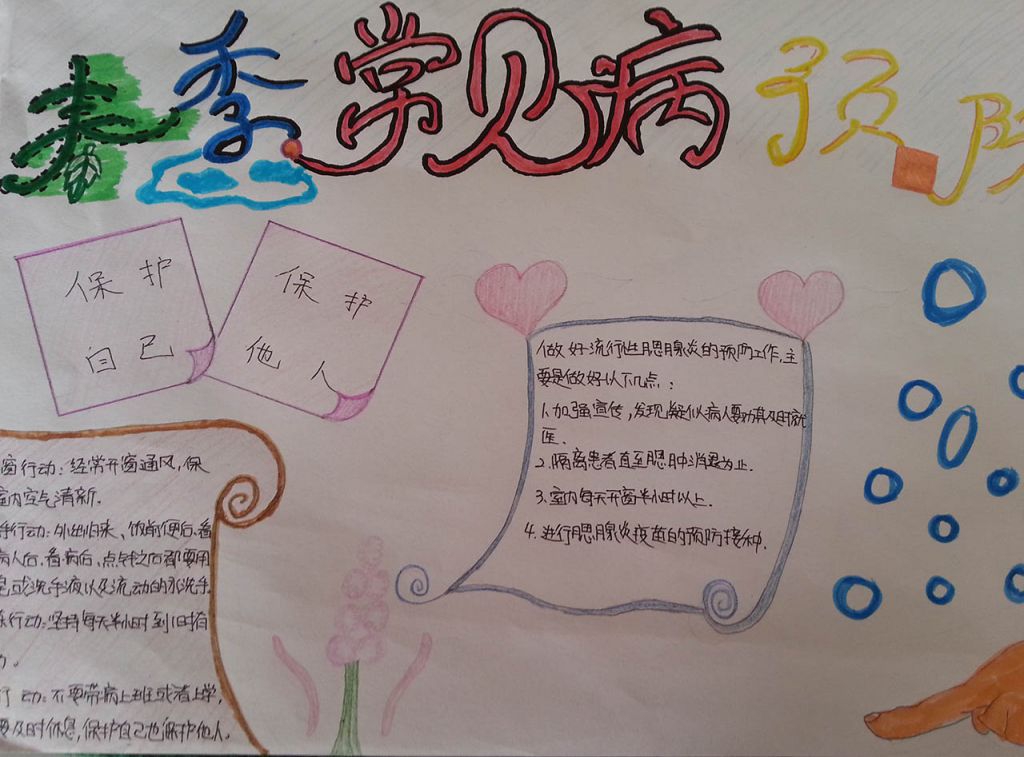 春季常见病预防
保护
自己
保护
他人
做好流行性腮腺炎的预防工作,主
要是做好以下几点：
1.加强宣传,发现疑似病人要劝其及时就
医.
2.隔离患者直至腮肿消退为止.
3.室内每天开窗半小时以上.
4.进行腮腺炎疫苗的预防接种.
窗行动:经常开窗通风,保
室内空气清新.
手行动:外出归来、饭前便后.看
病人后.看病后、点钱之后都要用
皂或洗手液以及流动的水洗手.
行动:坚持每天半小时到1小时有
动。
行动:不要带病上班或者上学,
要及时休息,保护自己也保护他人.